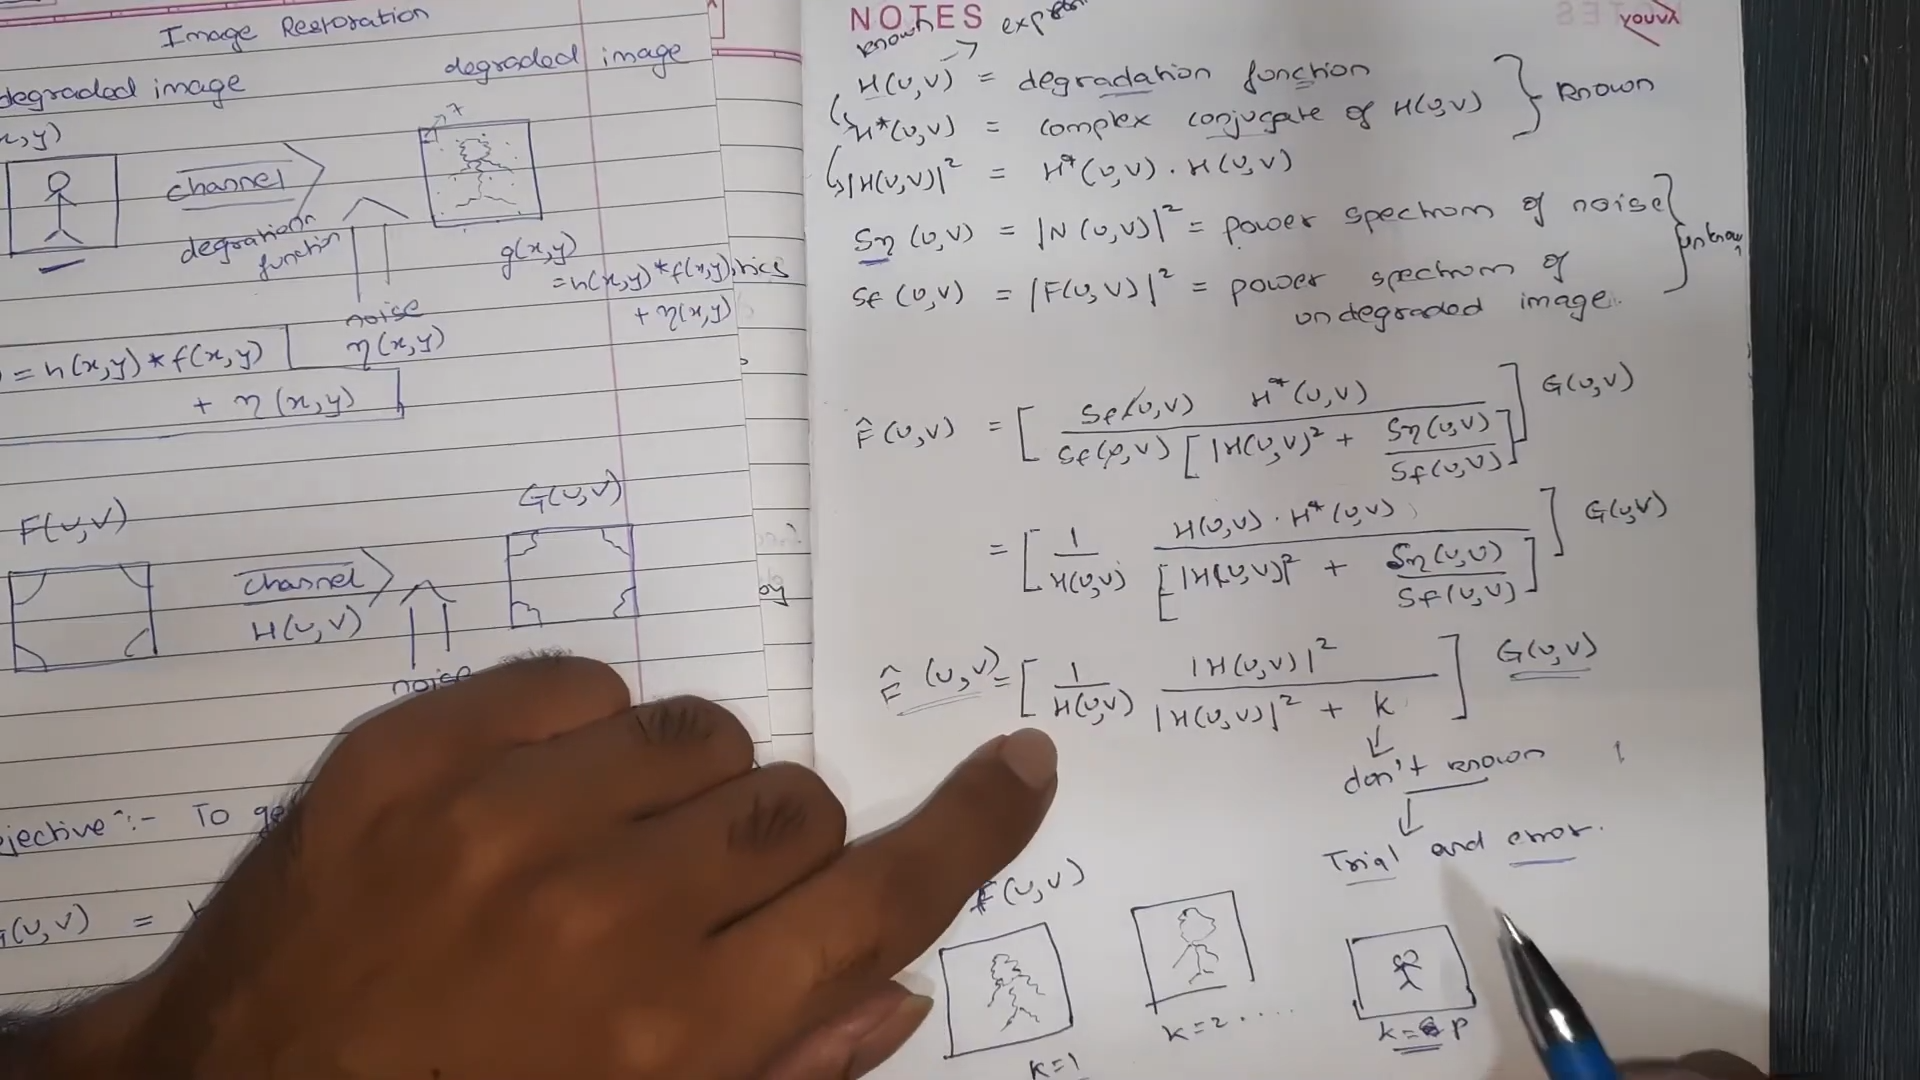 Image Restoration
degraded image
degraded image
x,y)
channel
degration
function
noise
η(x,y)
g(x,y)
=h(x,y)*f(x,y)
+ η(x,y)
= h(x,y)*f(x,y)
+ η(x,y)
F(u,v)
G(u,v)
channel
H(u,v)
noise
jective :- To ge
G(u,v) =
by
NOTES
known
→ exp
H(u,v) = degradation function
H*(u,v) = complex conjugate of H(u,v) } known
|H(u,v)|² = H*(u,v) . H(u,v)
Sη (u,v) = |N(u,v)|² = power spectrum of noise
Sf (u,v) = |F(u,v)|² = power spectrum of
undegraded image.
F̂(u,v) = [ Sf(u,v) H*(u,v) / Sf(u,v) [ |H(u,v)|² + Sη(u,v) / Sf(u,v) ] ] G(u,v)
= [ 1 / H(u,v) H(u,v) . H*(u,v) / [ |H(u,v)|² + Sη(u,v) / Sf(u,v) ] ] G(u,v)
F̂ (u,v) = [ 1 / H(u,v) |H(u,v)|² / |H(u,v)|² + k ] G(u,v)
don't known
Trial and error.
F(u,v)
k=1
k=2 ....
k= p
youva